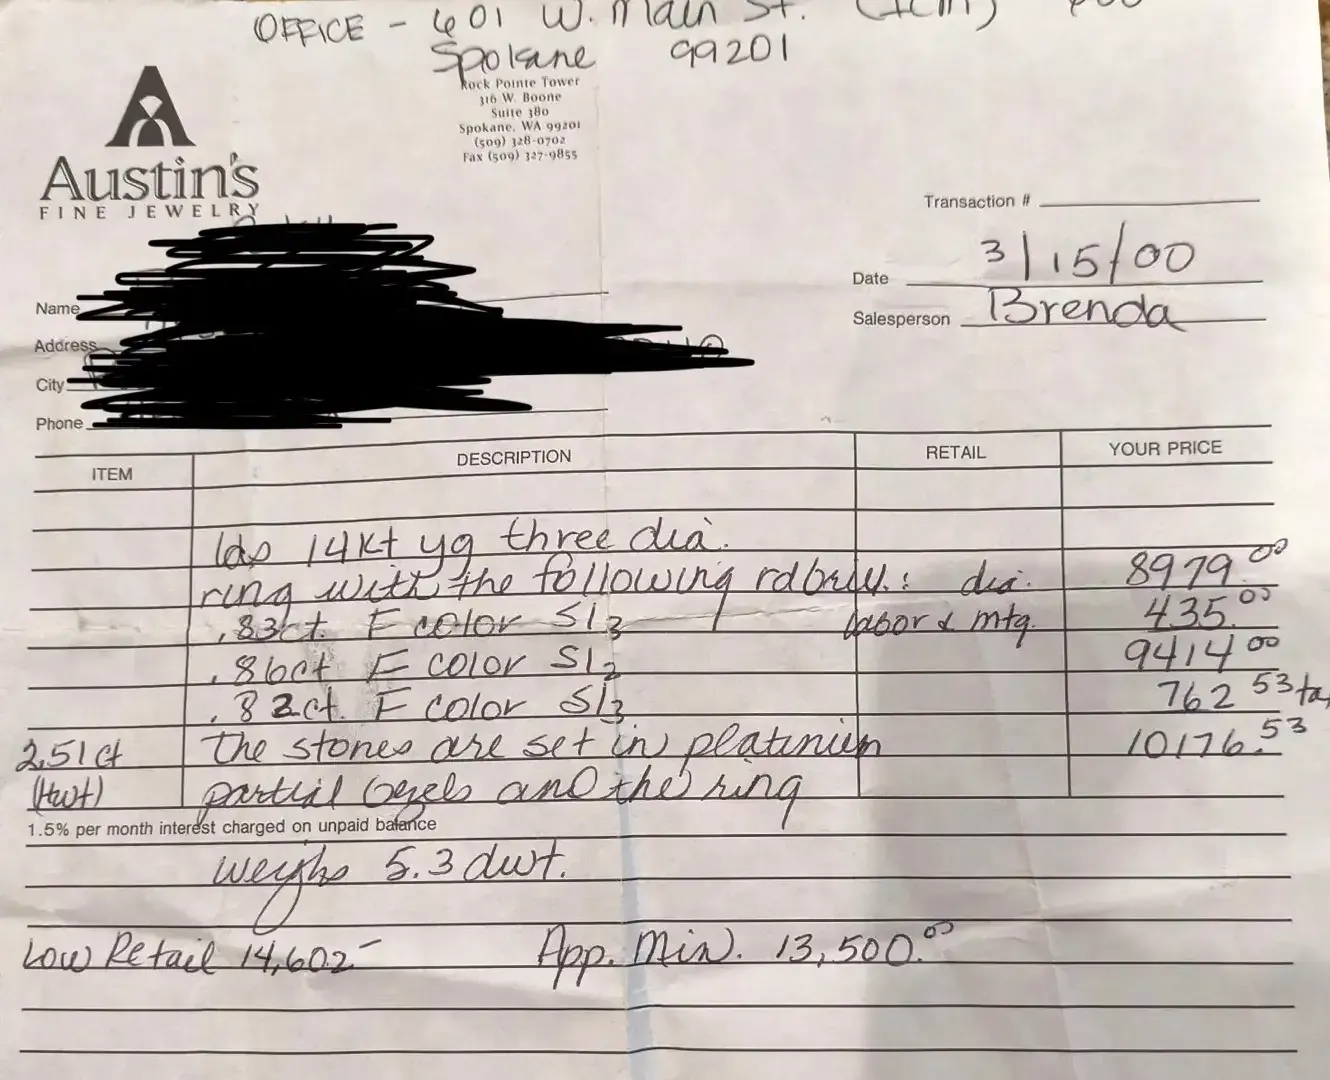 OFFICE - 601 W. Main St.
Spokane 99201
Rock Pointe Tower
316 W. Boone
Suite 380
Spokane, WA 99201
(509) 328-0702
Fax (509) 327-9855
Austin's
FINE JEWELRY
Transaction #
Date 3/15/00
Salesperson Brenda
Name
Address
City
Phone
ITEM DESCRIPTION RETAIL YOUR PRICE
lds 14kt yg three dia.
ring with the following rdbrill.: dia. 8979.00
.83ct. F color SI3 labor & mtg. 435.00
.86ct F color SI2 9414 00
.82ct. F color SI3 762 53 ta
2.51 ct the stones are set in platinium 10176.53
(twt) partial bezels and the ring
1.5% per month interest charged on unpaid balance
weighs 5.3 dwt.
Low Retail 14,602- App. Min. 13,500.00